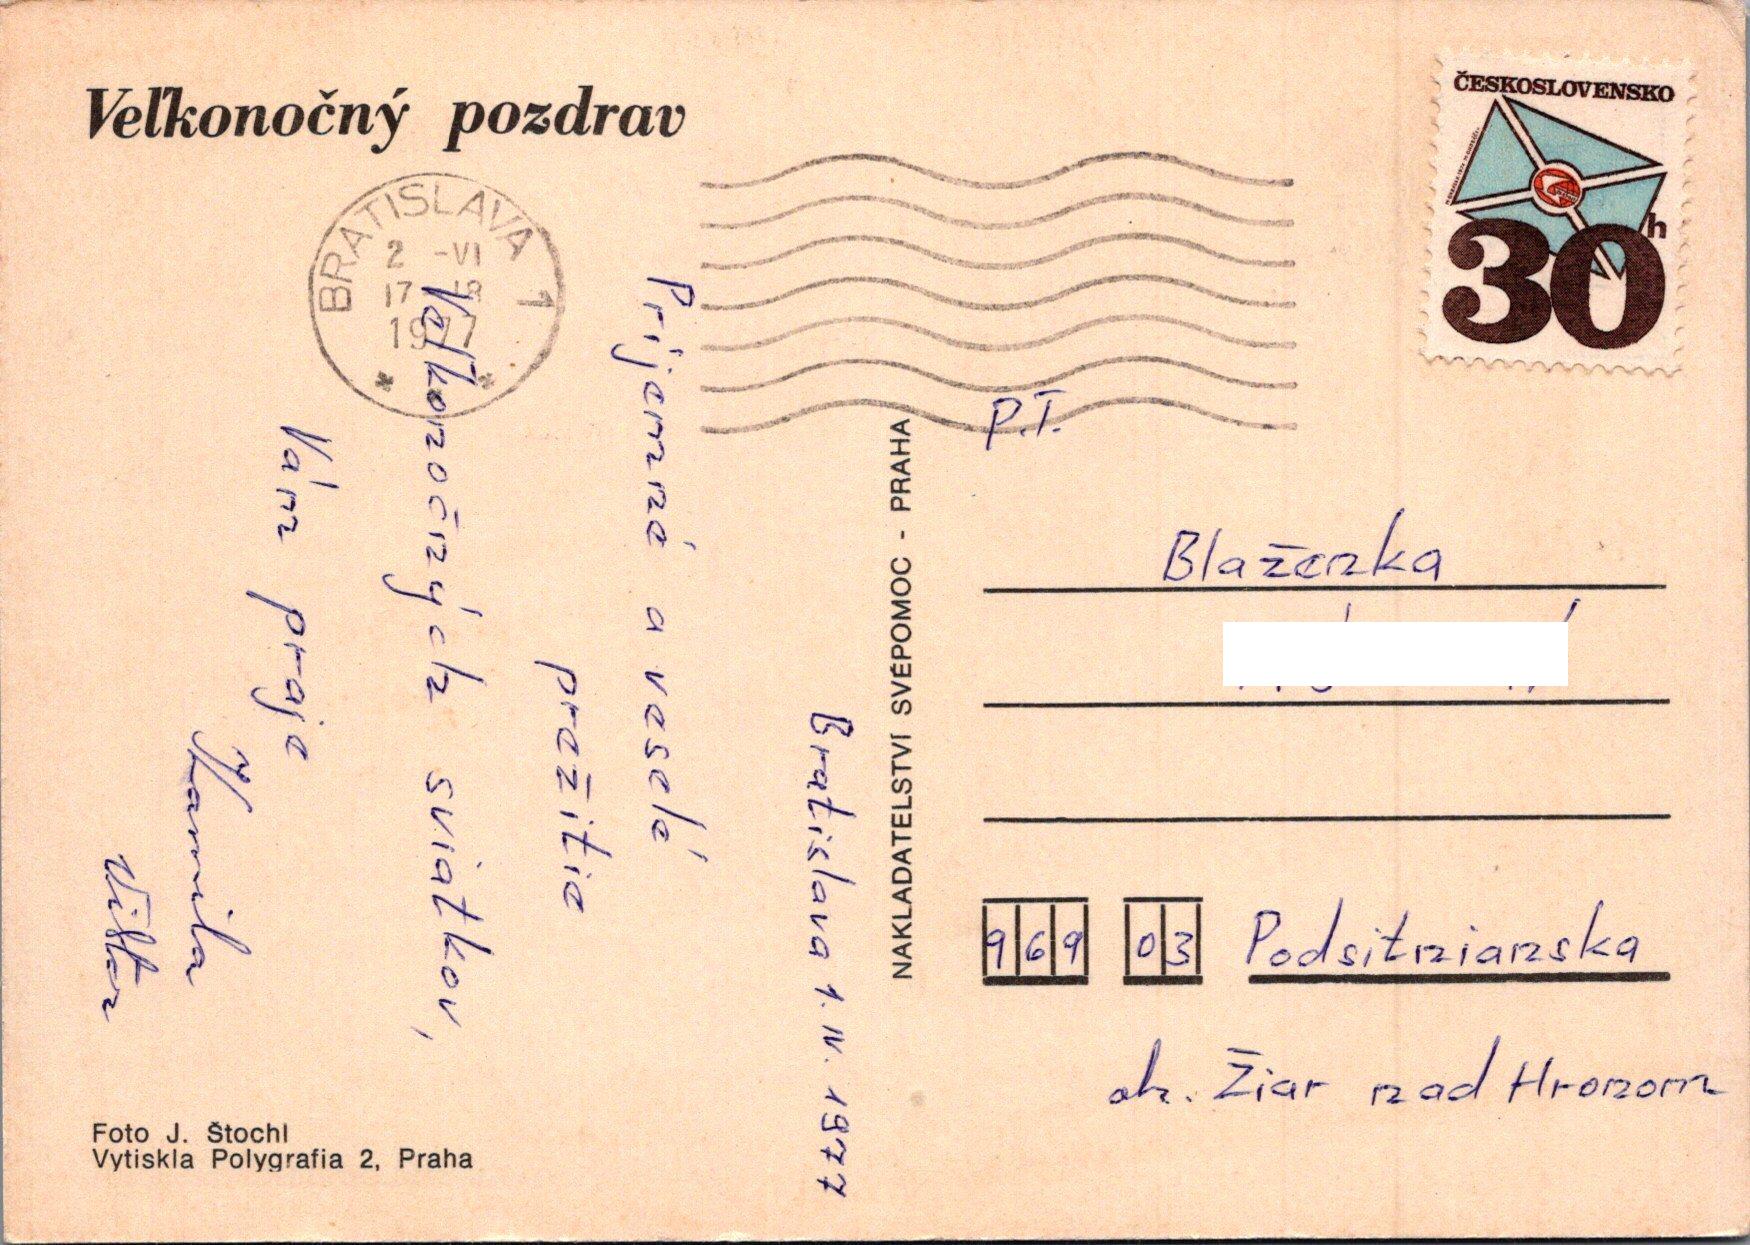 Veľkonočný pozdrav
ČESKOSLOVENSKO
30 h
BRATISLAVA 1
2 -VI
17 -18
1977
Bratislava 1. IV. 1977
Príjemné a veselé
prežitie
Veľkonočných sviatkov,
Vám praje
Kamila
Viktor
NAKLADATELSTVÍ SVÉPOMOC - PRAHA
P.T.
Blaženka
969 03 Podsitnianska
ok. Žiar nad Hronom
Foto J. Štochl
Vytiskla Polygrafia 2, Praha